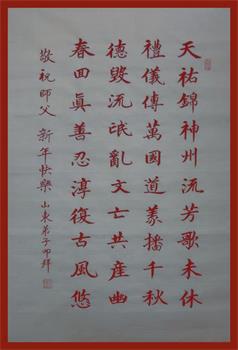 天祐錦神州流芳歌未休
禮儀傳萬國道義播千秋
德毀流氓亂文亡共產幽
春回眞善忍淳復古風悠
敬祝師父 新年快樂 山東弟子叩拜